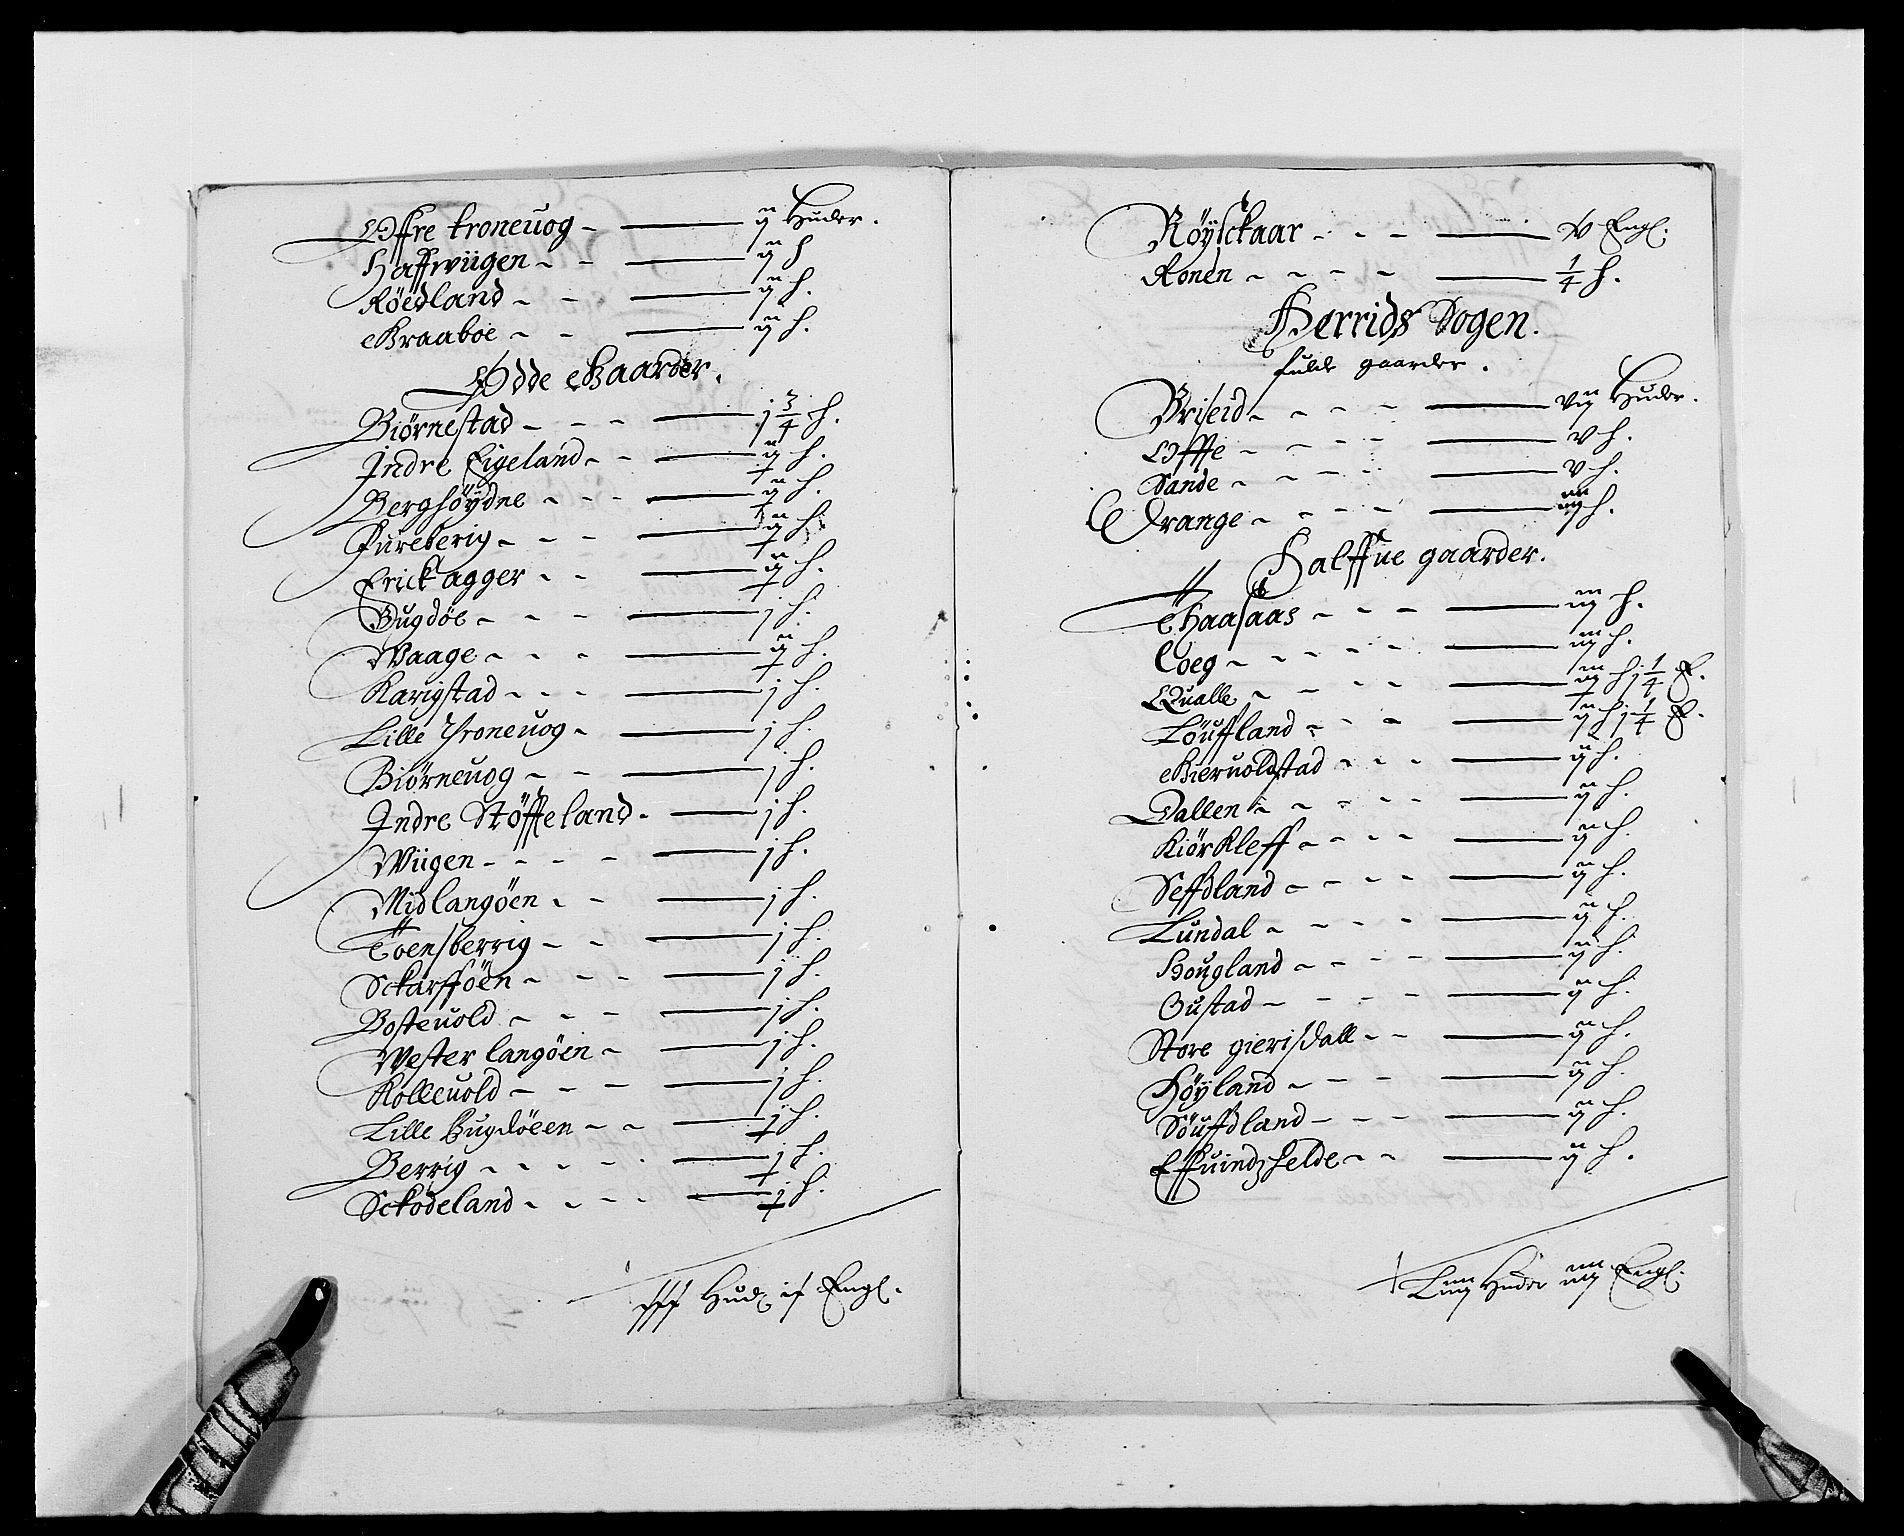 Øffre Kroneuog - ij Huder.
Haffwiigen - - ij h
Röedland - - ij h.
Graaboe - - ij h.
Ødde Gaarder.
Biörnestad - - - j 3/4 h.
Indre Eigeland - - ij h.
Berghöydne - - - ij h.
Fureberig - - - ij h.
Erickagger - - ij h.
Bugdöe - - - j h.
Waage - - - ij h.
Karigstad - - - j h.
Lille Kroneuog - j h.
Biörneuog - - - j h.
Indre Stöffeland - j h.
Wiigen - - - - j h.
Midlangöen - - j h.
Töensberrig - - j h.
Sckarfföen - - - j h.
Bosteuold - - - j h.
Wester langöen - j h.
Kolleuold - - - j h.
Lille Bugdöeen - - j h.
Berrig - - - - - j h.
Sckodeland - - - - j h.
Hud
Engl.
Röysckaar - - - V Engl.
Ronen - - - - 1/4 h.
Herrids Sogen.
fulde gaarder.
Briseid - - - - Vij Huder.
Offte - - - - V h.
Sande - - - - V h.
Orange - - - - iiij h.
Halffue gaarder.
Thaasaas - - - iij h.
Coeg - - - - - iij h.
Qualle - - - iij h j 1/4 E.
Löuffland - - - ij h j 1/4 E.
Gieruoldstad - - - ij h.
Dallen - - - - - ij h.
Kiörkleff - - - - ij h.
Seffdland - - - - ij h.
Lundal - - - - ij h.
Hougland - - - - ij h.
Gustad - - - - ij h.
Store gierisdall - - ij h.
Höyland - - - ij h.
Söuffdland - - - ij h.
Effuindshelde - - ij h.
Liiij Huder iiij Engl.